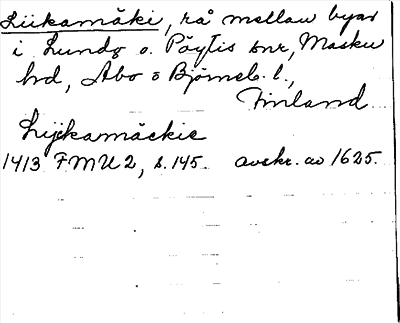 Liikamäki, rå mellan byar
i Lundo o. Pöytis snr, Masku
hd, Åbo o Björneb. l.,
Finland
Lijckamäckie
1413 FMU 2, s. 145. avskr. av 1625.